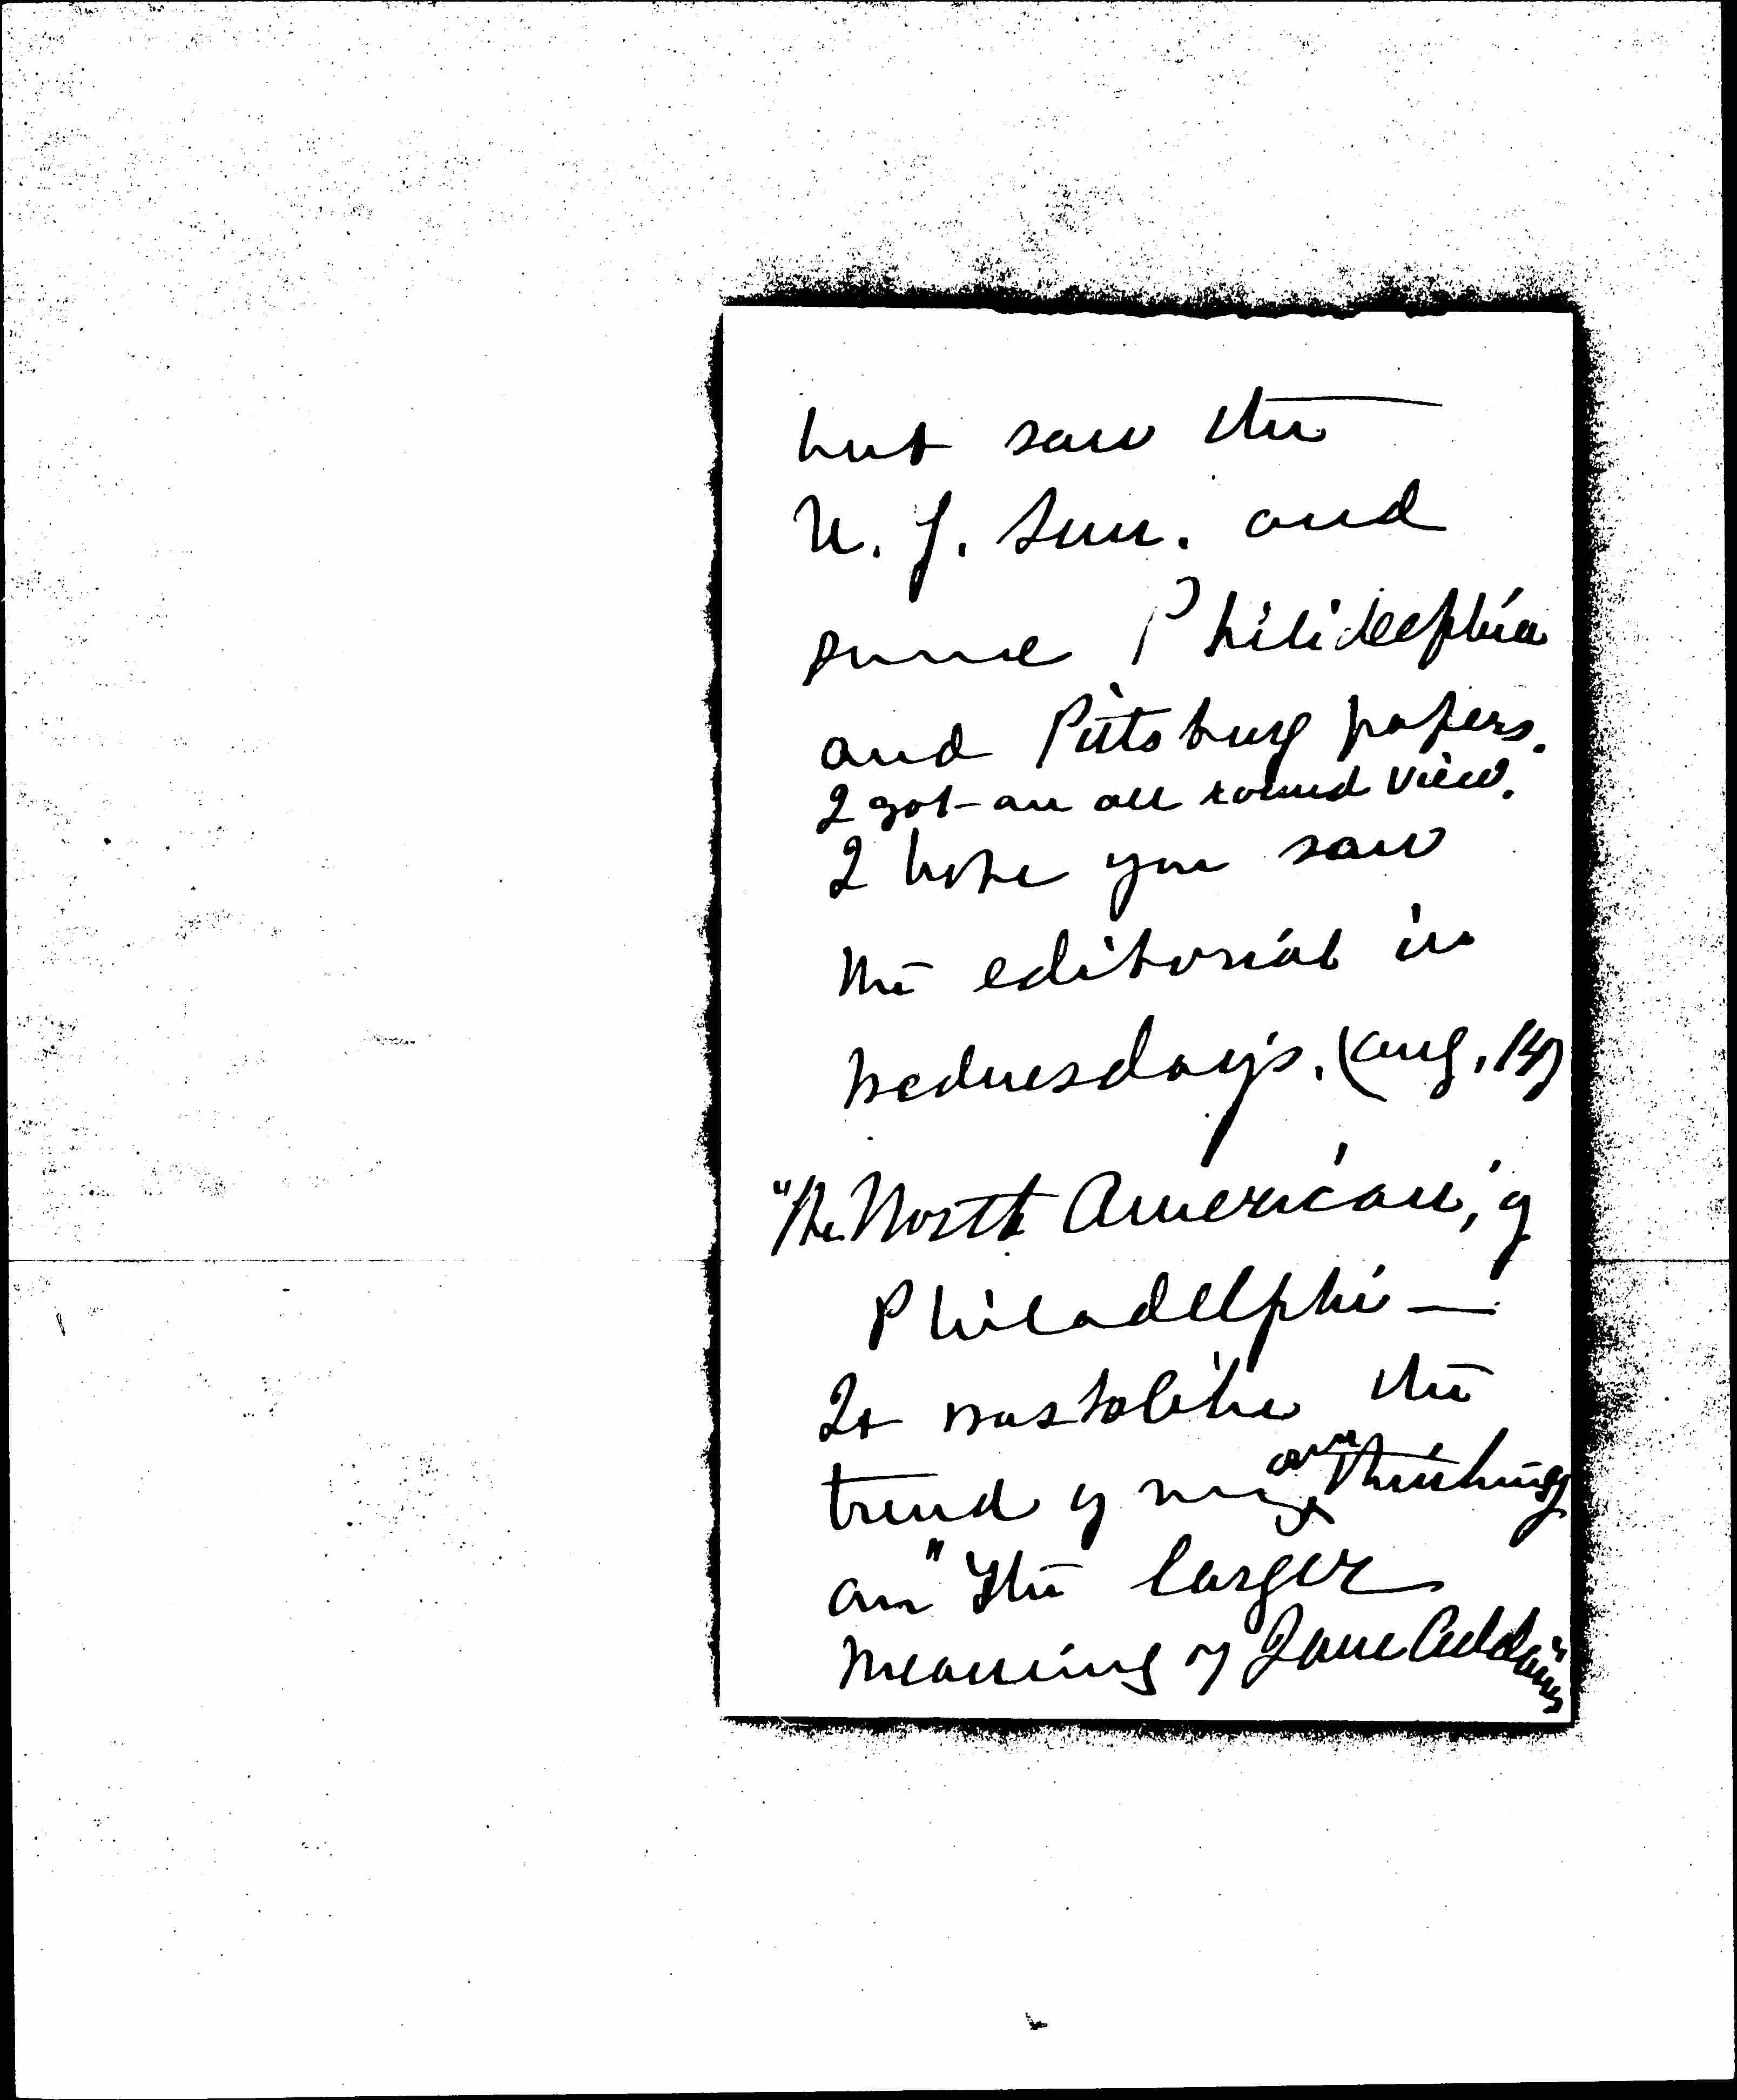 but saw the
N.Y. Sun. and
some Philidelphia
and Pittsburg papers.
I got an all round view.
I hope you saw
the editorial in
Wednesday's. (Aug. 14)
"The North American," of
Philadelphi—
It was to like the
trend of my own thinking
on "The larger
meaning of Jane Addams